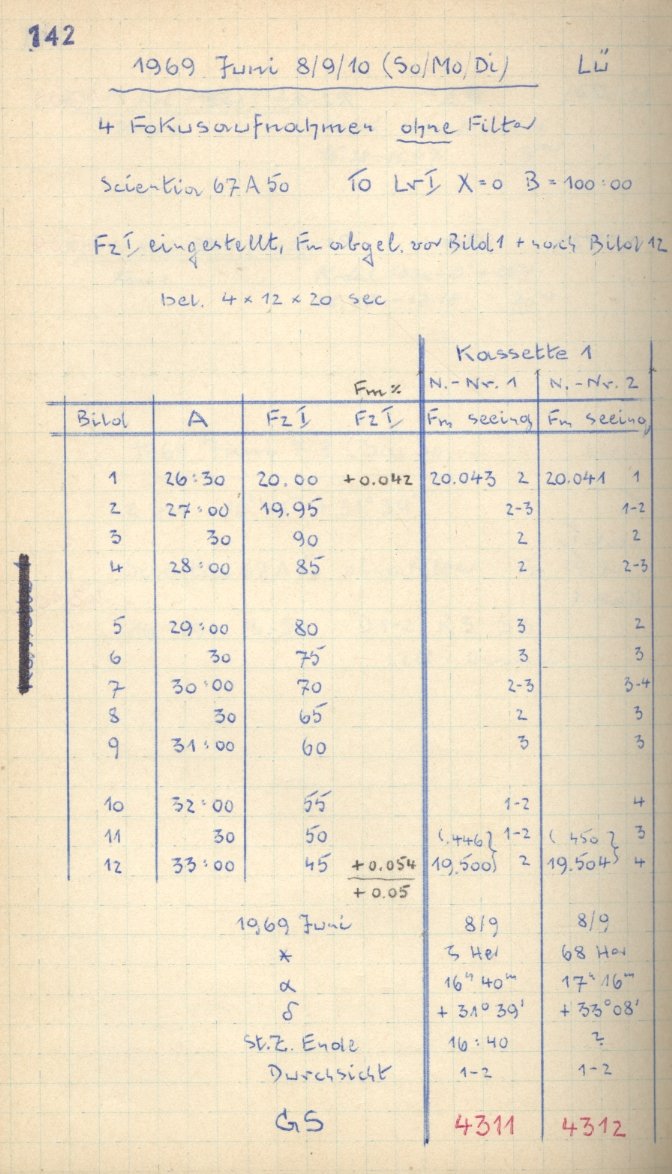 142
1969 Juni 8/9/10 (So/Mo/Di) Lü
4 Fokusaufnahmen ohne Filter
Scientia 67 A 50 TO LrI X = 0 B = 100:00
FzI eingestellt, Fm abgel. vor Bild 1 + nach Bild 12
bel. 4 x 12 x 20 sec
Kassette 1
Fm% N.-Nr. 1 N.-Nr. 2
Bild A FzI FzI Fm seeing Fm seeing
1 26:30 20.00 +0.042 20.043 2 20.041 1
2 27:00 19.95 2-3 1-2
3 30 90 2 2
4 28:00 85 2 2-3
5 29:00 80 3 2
6 30 75 3 3
7 30:00 70 2-3 3-4
8 30 65 2 3
9 31:00 60 3 3
10 32:00 55 1-2 4
11 30 50 (.446) 1-2 (.450) 3
12 33:00 45 +0.054 19.500) 2 19.504) 4
+0.05
1969 Juni 8/9 8/9
* ζ Her 68 Her
α 16h 40m 17h 16m
δ + 31° 39' + 33° 08'
St.Z. Ende 16:40 ?
Durchsicht 1-2 1-2
GS 4311 4312